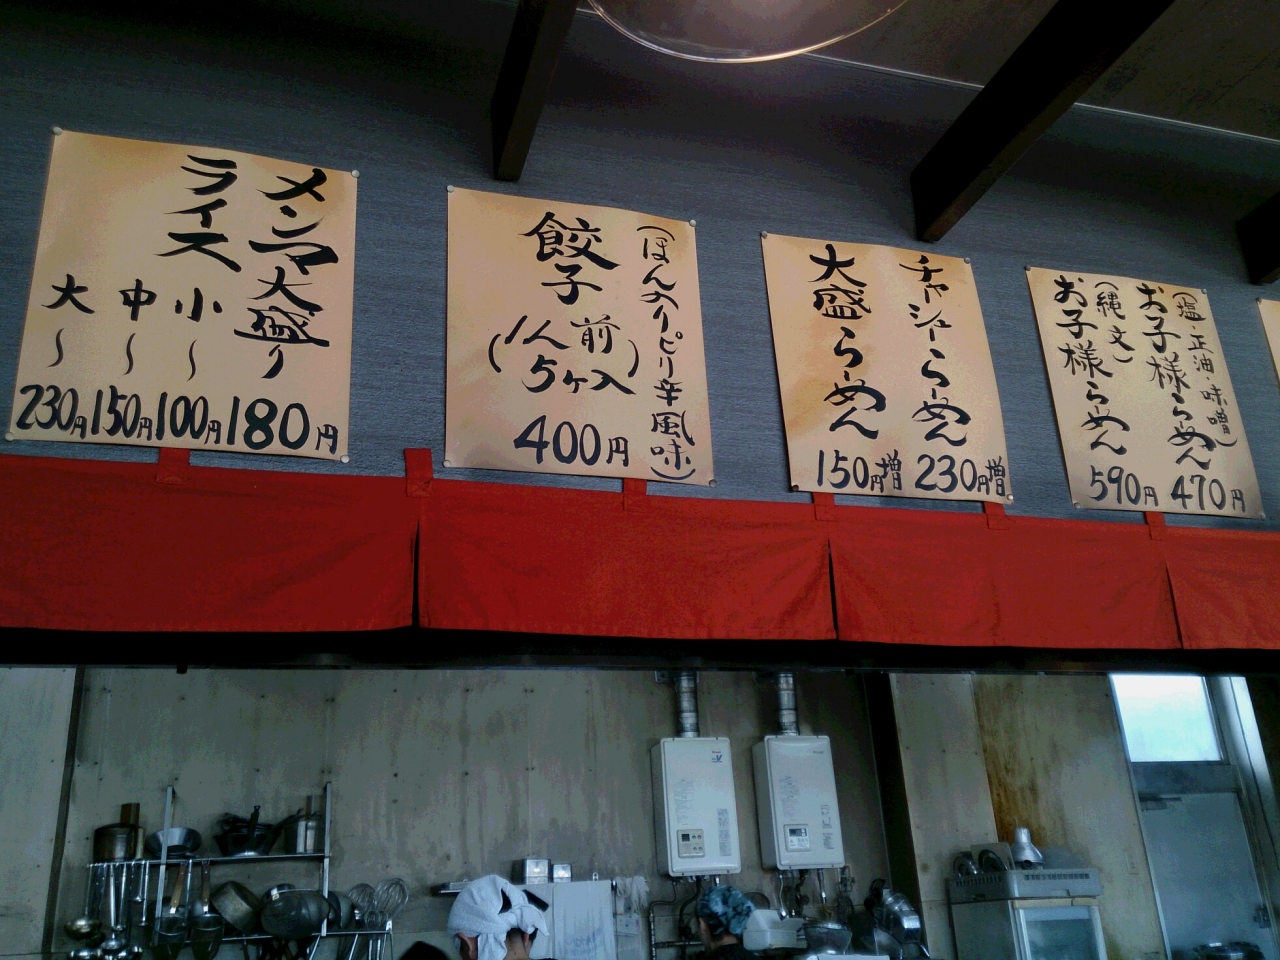 メンマ大盛り 180円
ライス 小〜100円
中〜150円
大〜230円
(ほんのりピリ辛風味)
餃子
(1人前
5ヶ入)
400円
チャーシューらーめん 230円増
大盛らーめん 150円増
(塩・正油・味噌)
お子様らーめん 470円
(縄文)
お子様らーめん 590円